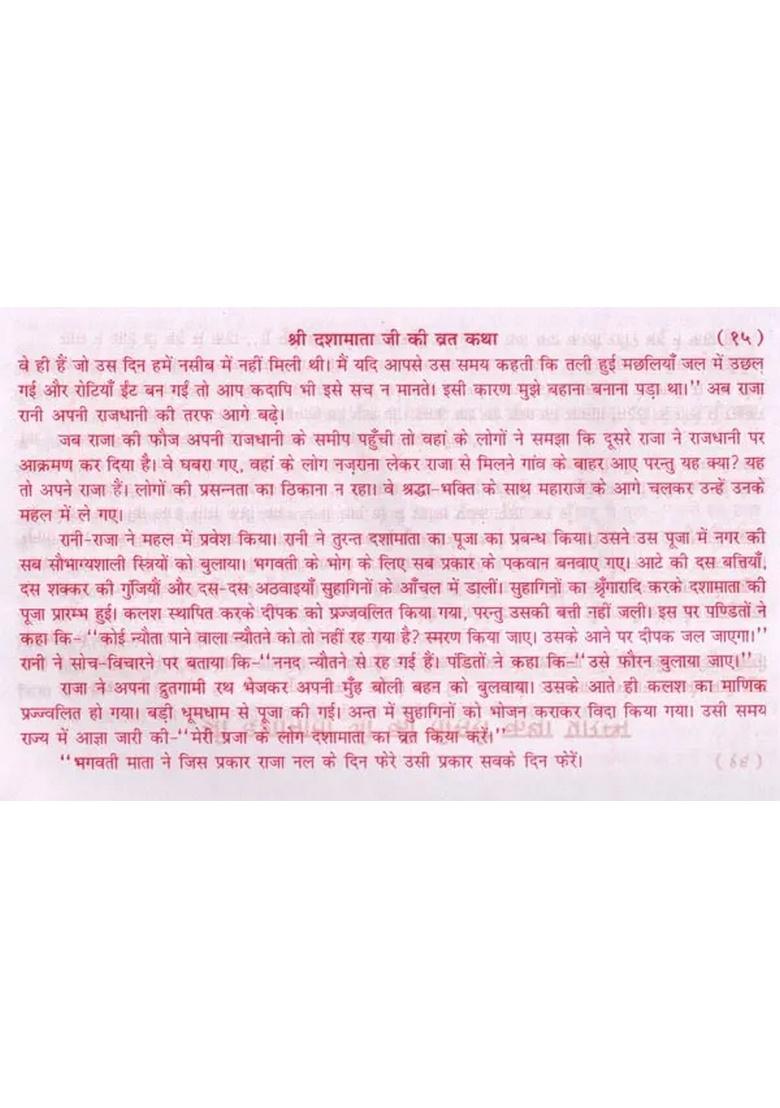 श्री दशामाता जी की व्रत कथा (१५)
वे ही हैं जो उस दिन हमें नसीब में नहीं मिली थी। मैं यदि आपसे उस समय कहती कि तली हुई मछलियाँ जल में उछल
गई और रोटियाँ ईंट बन गईं तो आप कदापि भी इसे सच न मानते। इसी कारण मुझे बहाना बनाना पड़ा था।'' अब राजा
रानी अपनी राजधानी की तरफ आगे बढ़े।
जब राजा की फौज अपनी राजधानी के समीप पहुँची तो वहां के लोगों ने समझा कि दूसरे राजा ने राजधानी पर
आक्रमण कर दिया है। वे घबरा गए, वहां के लोग नज़राना लेकर राजा से मिलने गांव के बाहर आए परन्तु यह क्या? यह
तो अपने राजा हैं। लोगों की प्रसन्नता का ठिकाना न रहा। वे श्रद्धा-भक्ति के साथ महाराज के आगे चलकर उन्हें उनके
महल में ले गए।
रानी-राजा ने महल में प्रवेश किया। रानी ने तुरन्त दशामाता का पूजा का प्रबन्ध किया। उसने उस पूजा में नगर की
सब सौभाग्यशाली स्त्रियों को बुलाया। भगवती के भोग के लिए सब प्रकार के पकवान बनवाए गए। आटे की दस बत्तियाँ,
दस शक्कर की गुंजियाँ और दस-दस अठवाइयाँ सुहागिनों के आँचल में डालीं। सुहागिनों का श्रृँगारादि करके दशामाता की
पूजा प्रारम्भ हुई। कलश स्थापित करके दीपक को प्रज्जवलित किया गया, परन्तु उसकी बत्ती नहीं जली। इस पर पण्डितों ने
कहा कि-''कोई न्यौता पाने वाला न्यौतने को तो नहीं रह गया है? स्मरण किया जाए। उसके आने पर दीपक जल जाएगा।''
रानी ने सोच-विचारने पर बताया कि-''ननद न्यौतने से रह गई हैं। पंडितों ने कहा कि-''उसे फौरन बुलाया जाए।''
राजा ने अपना द्रुतगामी रथ भेजकर अपनी मुँह बोली बहन को बुलवाया। उसके आते ही कलश का माणिक
प्रज्ज्वलित हो गया। बड़ी धूमधाम से पूजा की गई। अन्त में सुहागिनों को भोजन कराकर विदा किया गया। उसी समय
राज्य में आज्ञा जारी की-''मेरी प्रजा के लोग दशामाता का व्रत किया करें।''
''भगवती माता ने जिस प्रकार राजा नल के दिन फेरे उसी प्रकार सबके दिन फेरें।